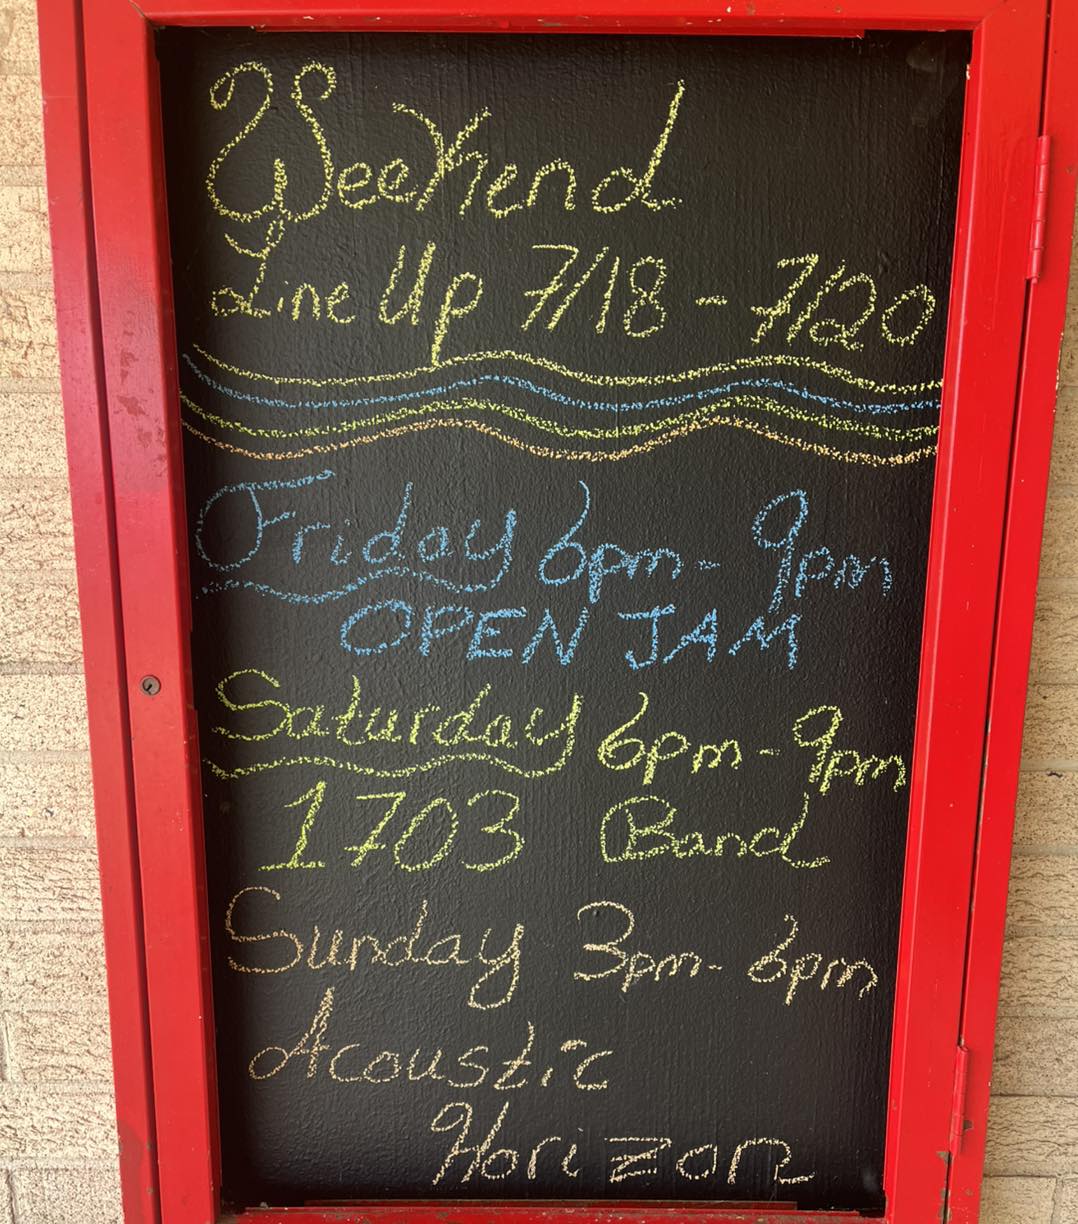 Weekend
Line Up 7/18 - 7/20
Friday 6pm - 9pm
OPEN JAM
Saturday 6pm - 9pm
1703 Band
Sunday 3pm - 6pm
Acoustic
Horizon